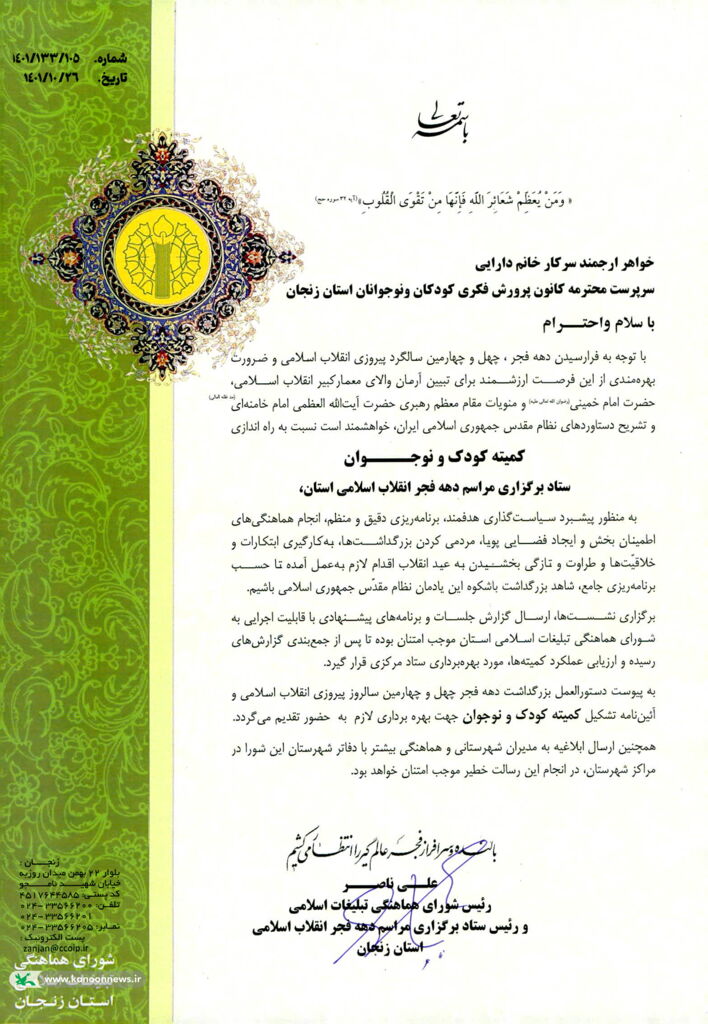 شماره. ۱۴۰۱/۱۳۳/۱۰۵
تاریخ. ۱۴۰۱/۱۰/۲۶
باسمه تعالی
« وَمَنْ يُعَظِّمْ شَعَائِرَ اللَّهِ فَإِنَّهَا مِنْ تَقْوَى الْقُلُوبِ»(آیه ۳۲ سوره حج)
خواهر ارجمند سرکار خانم دارایی
سرپرست محترمه کانون پرورش فکری کودکان ونوجوانان استان زنجان
با سلام واحترام
با توجه به فرارسیدن دهه فجر ، چهل و چهارمین سالگرد پیروزی انقلاب اسلامی و ضرورت
بهره‌مندی از این فرصت ارزشمند برای تبیین آرمان والای معمارکبیر انقلاب اسلامی،
حضرت امام خمینی(رضوان الله تعالی علیه) و منویات مقام معظم رهبری حضرت آیت‌الله العظمی امام خامنه‌ای(مد ظله العالی)
و تشریح دستاوردهای نظام مقدس جمهوری اسلامی ایران، خواهشمند است نسبت به راه اندازی
کمیته کودک و نوجوان
ستاد برگزاری مراسم دهه فجر انقلاب اسلامی استان،
به منظور پیشبرد سیاست‌گذاری هدفمند، برنامه‌ریزی دقیق و منظم، انجام هماهنگی‌های
اطمینان بخش و ایجاد فضایی پویا، مردمی کردن بزرگداشت‌ها، به‌کارگیری ابتکارات و
خلاقیّت‌ها و طراوت و تازگی بخشیدن به عید انقلاب اقدام لازم به‌عمل آمده تا حسب
برنامه‌ریزی جامع، شاهد بزرگداشت باشکوه این یادمان نظام مقدّس جمهوری اسلامی باشیم.
برگزاری نشست‌ها، ارسال گزارش جلسات و برنامه‌های پیشنهادی با قابلیت اجرایی به
شورای هماهنگی تبلیغات اسلامی استان موجب امتنان بوده تا پس از جمع‌بندی گزارش‌های
رسیده و ارزیابی عملکرد کمیته‌ها، مورد بهره‌برداری ستاد مرکزی قرار گیرد.
به پیوست دستورالعمل بزرگداشت دهه فجر چهل و چهارمین سالروز پیروزی انقلاب اسلامی و
آئین‌نامه تشکیل کمیته کودک و نوجوان جهت بهره برداری لازم به حضور تقدیم می‌گردد.
همچنین ارسال ابلاغیه به مدیران شهرستانی و هماهنگی بیشتر با دفاتر شهرستان این شورا در
مراکز شهرستان، در انجام این رسالت خطیر موجب امتنان خواهد بود.
بالنده و سرافراز فجر عالم گیر را انتظار می کشیم
علی ناصر
رئیس شورای هماهنگی تبلیغات اسلامی
و رئیس ستاد برگزاری مراسم دهه فجر انقلاب اسلامی
استان زنجان
زنجان :
بلوار ۲۲ بهمن میدان روزبه
خیابان شهید نامجو
کد پستی: ۴۵۱۷۶۴۴۵۸۵
تلفن: ۳۳۵۶۶۲۰۰-۰۲۴
۳۳۵۶۶۲۰۱-۰۲۴
نمابر: ۳۳۵۶۶۲۰۵-۰۲۴
پست الکترونیک :
zanjan@ccoip.ir
شورای هماهنگی
www.kanoonnews.ir
استان زنجان